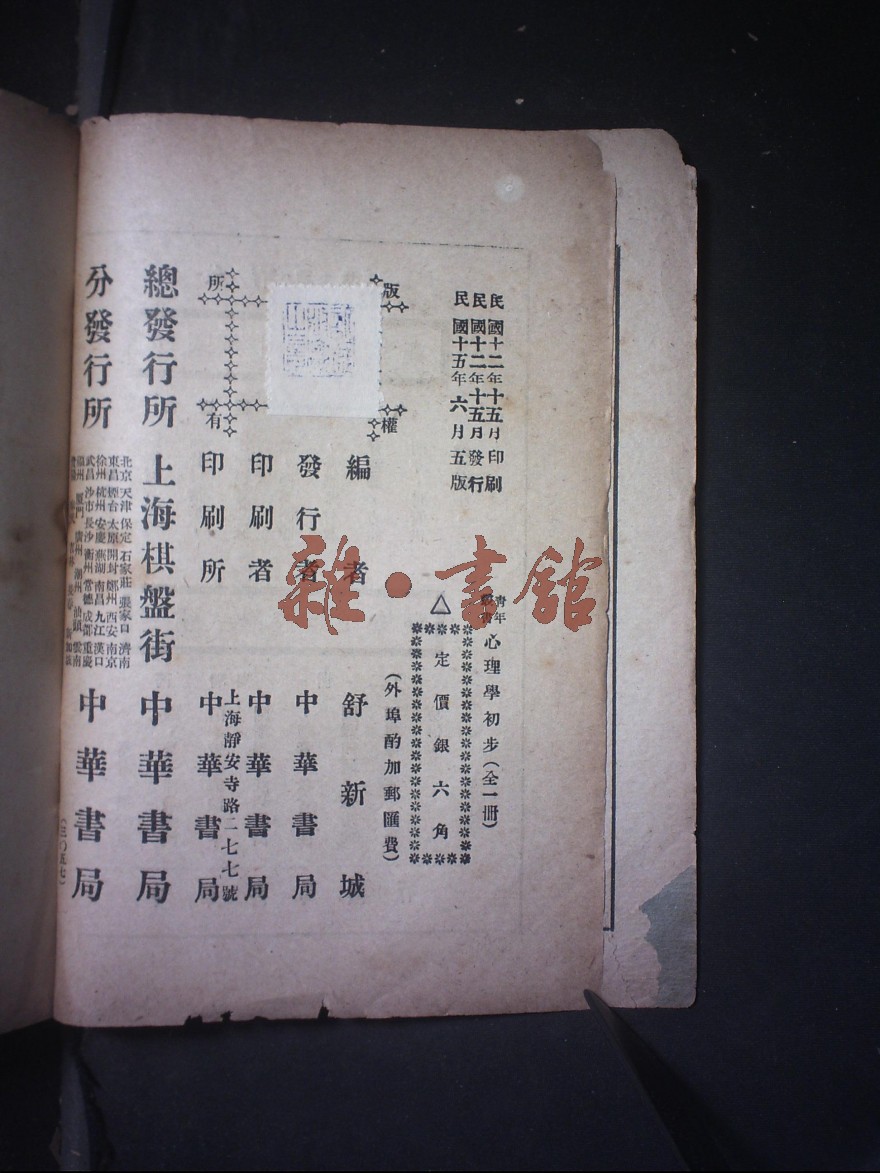 民國十二年十五月印刷
民國十二年十五月發行
民國十五年六月五版
青年
心理學初步(全一冊)
△定價銀六角
(外埠酌加郵匯費)
版權
所有
編者 舒新城
發行者 中華書局
印刷者 中華書局
上海靜安寺路二七七號
印刷所 中華書局
總發行所 上海棋盤街 中華書局
分發行所 中華書局
北京 天津 保定 石家莊 張家口 濟南
東昌 煙台 太原 開封 鄭州 西安 南京
徐州 杭州 安慶 蕪湖 南昌 九江 漢口
武昌 沙市 長沙 衡州 常德 成都 重慶
福州 厦門 廣州 潮州 汕頭 雲南
(三〇五七)
雜·書館